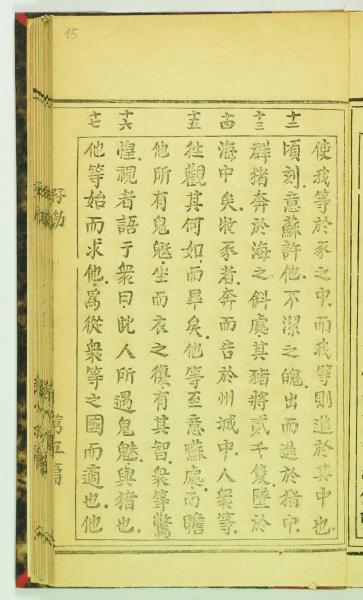 15
使我等於豕之中而我等則進於其中也
十二 頃刻意蘇許他不潔之魄出而進於猪中
十三 群猪奔於海之斜處其猪將貳千隻墜於
十四 海中矣牧豕者奔而告於州城中人衆等
十五 往觀其何如而畢矣他等至意囌處而瞻
他所有鬼魅坐而衣之復有其智衆等驚
十六 惶視者語于衆曰此人所遇鬼魅與猪也
十七 他等始而求他為從衆等之國而適也他
第五篇